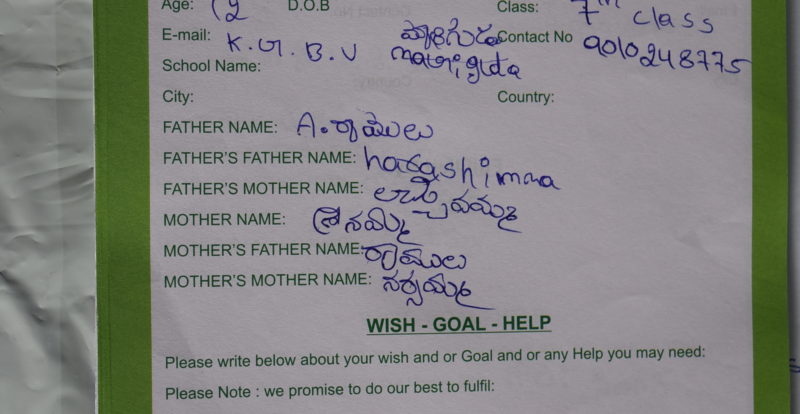 Age: 12 D.O.B Class: 7th class
E-mail: K.G.B.V Contact No 9010248775
School Name:
City: Country:
FATHER NAME: A. రాములు
FATHER'S FATHER NAME: narashimha
FATHER'S MOTHER NAME:
MOTHER NAME:
MOTHER'S FATHER NAME: రాములు
MOTHER'S MOTHER NAME: నర్సమ్మ
WISH - GOAL - HELP
Please write below about your wish and or Goal and or any Help you may need:
Please Note : we promise to do our best to fulfil: